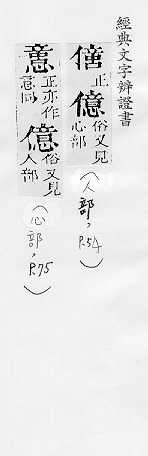 經典文字辯證書
僐正億俗又見心部
(人部,P.54)
意正亦作意同億俗又見人部
(心部,P.75)